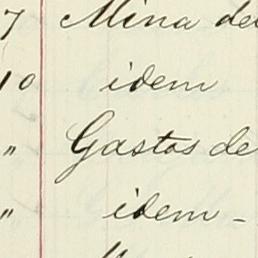 7 Mina de
10 idem
" Gastos de
" idem -